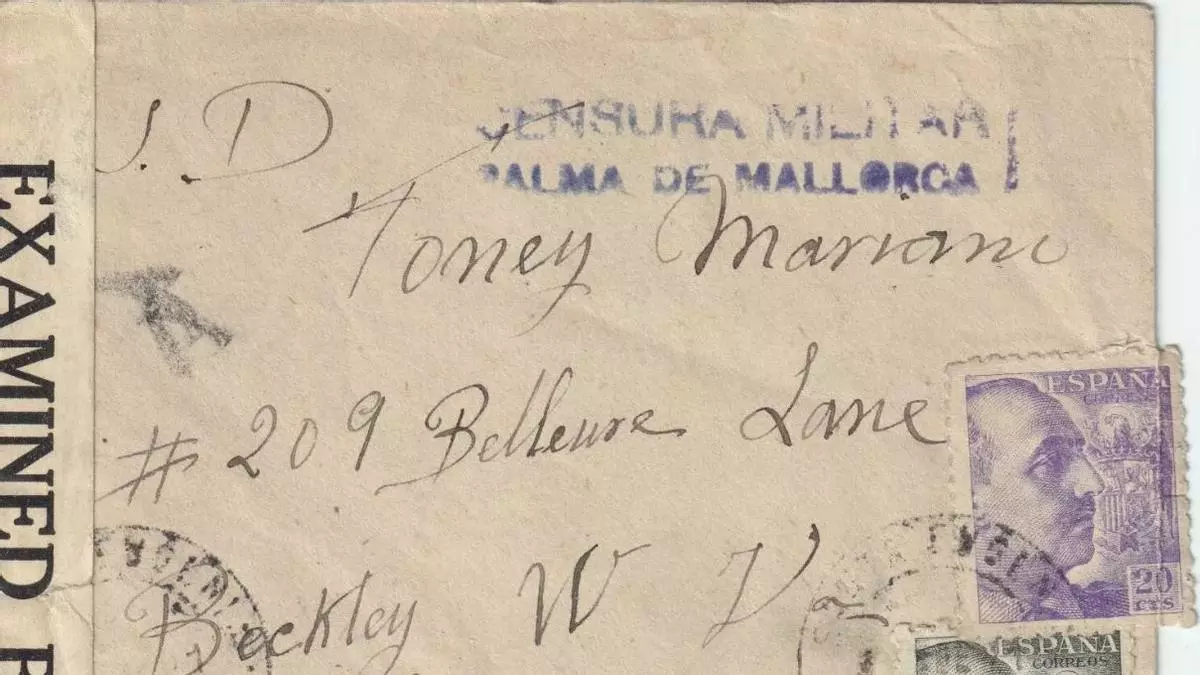 S. D
CENSURA MILITAR
PALMA DE MALLORCA
Toney Mariani
# 209 Bellevue Lane
Beckley W V
EXAMINED B
ESPAÑA
CORREOS
20
CTS
ESPAÑA
CORREOS